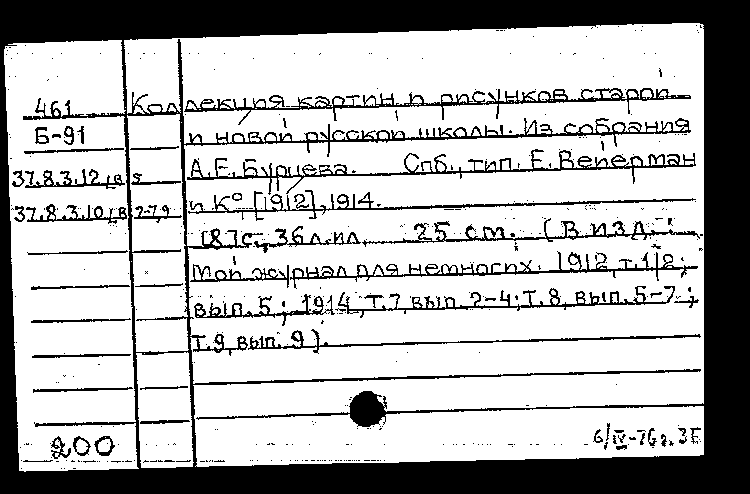 461 Коллекция картин и рисунков старой
Б-91 и новой русской школы. Из собрания
37.8.3.12/в 5 А.Е.Бурцева. Спб., тип. Е.Вейерман
37.8.3.10/в 2-7,9 и К°, [1912], 1914.
[8]с., 36 л.ил. 25 см. (В изд.:
Мой журнал для немногих. 1912, т.1/2;
вып.5; 1914, т.7, вып. 2-4; т.8, вып. 5-7;
т.9, вып. 9).
200 6/IV-76г. ЗЕ